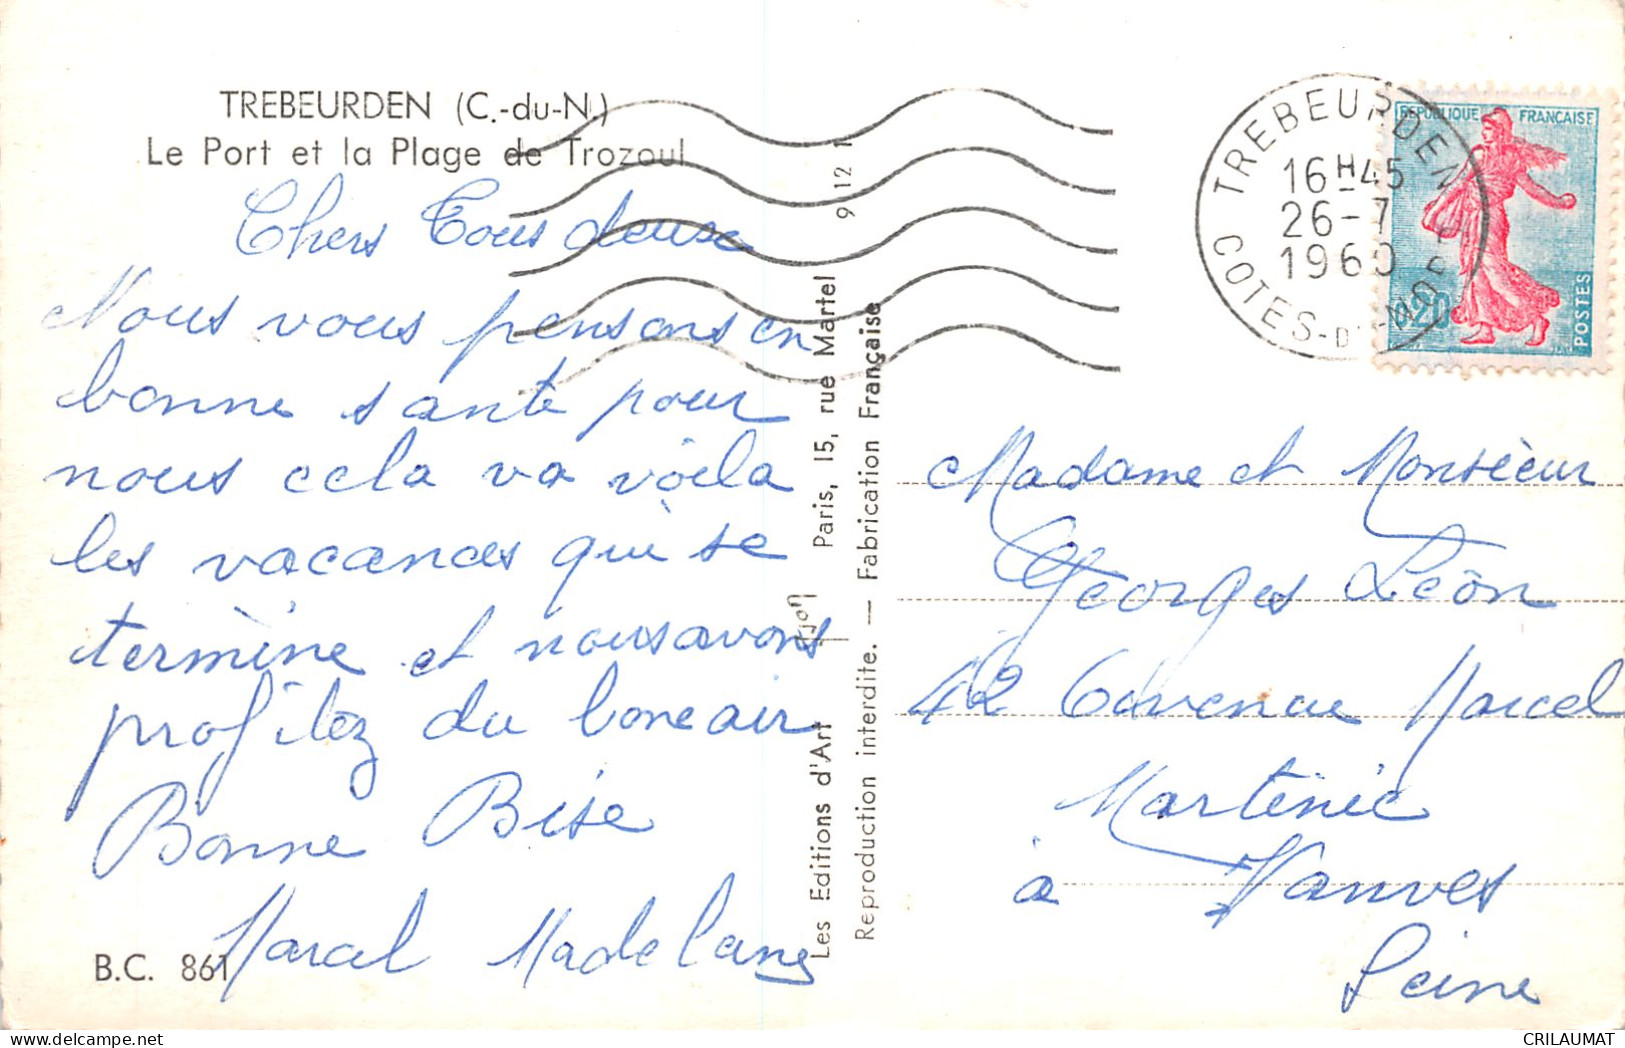 TREBEURDEN (C.-du-N.)
Le Port et la Plage de Trozoul
Chers Tous deux
Nous vous pensons en
bonne sante pour
nous cela va voila
les vacances qui se
termine et nous avons
profitez du bone air
Bonne Bise
Marcel Madelaine
B.C. 861
Les Editions d'Art Paris, 15, rue Martel 9 12
Reproduction interdite. — Fabrication Française
TREBEURDEN
16H45
26-7
1960
COTES-D
REPUBLIQUE FRANÇAISE
0,20
POSTES
Madame et Monsieur
Georges Léon
42 Avenue Marcel
Martinie
à Vanves
Seine
CRILAUMAT